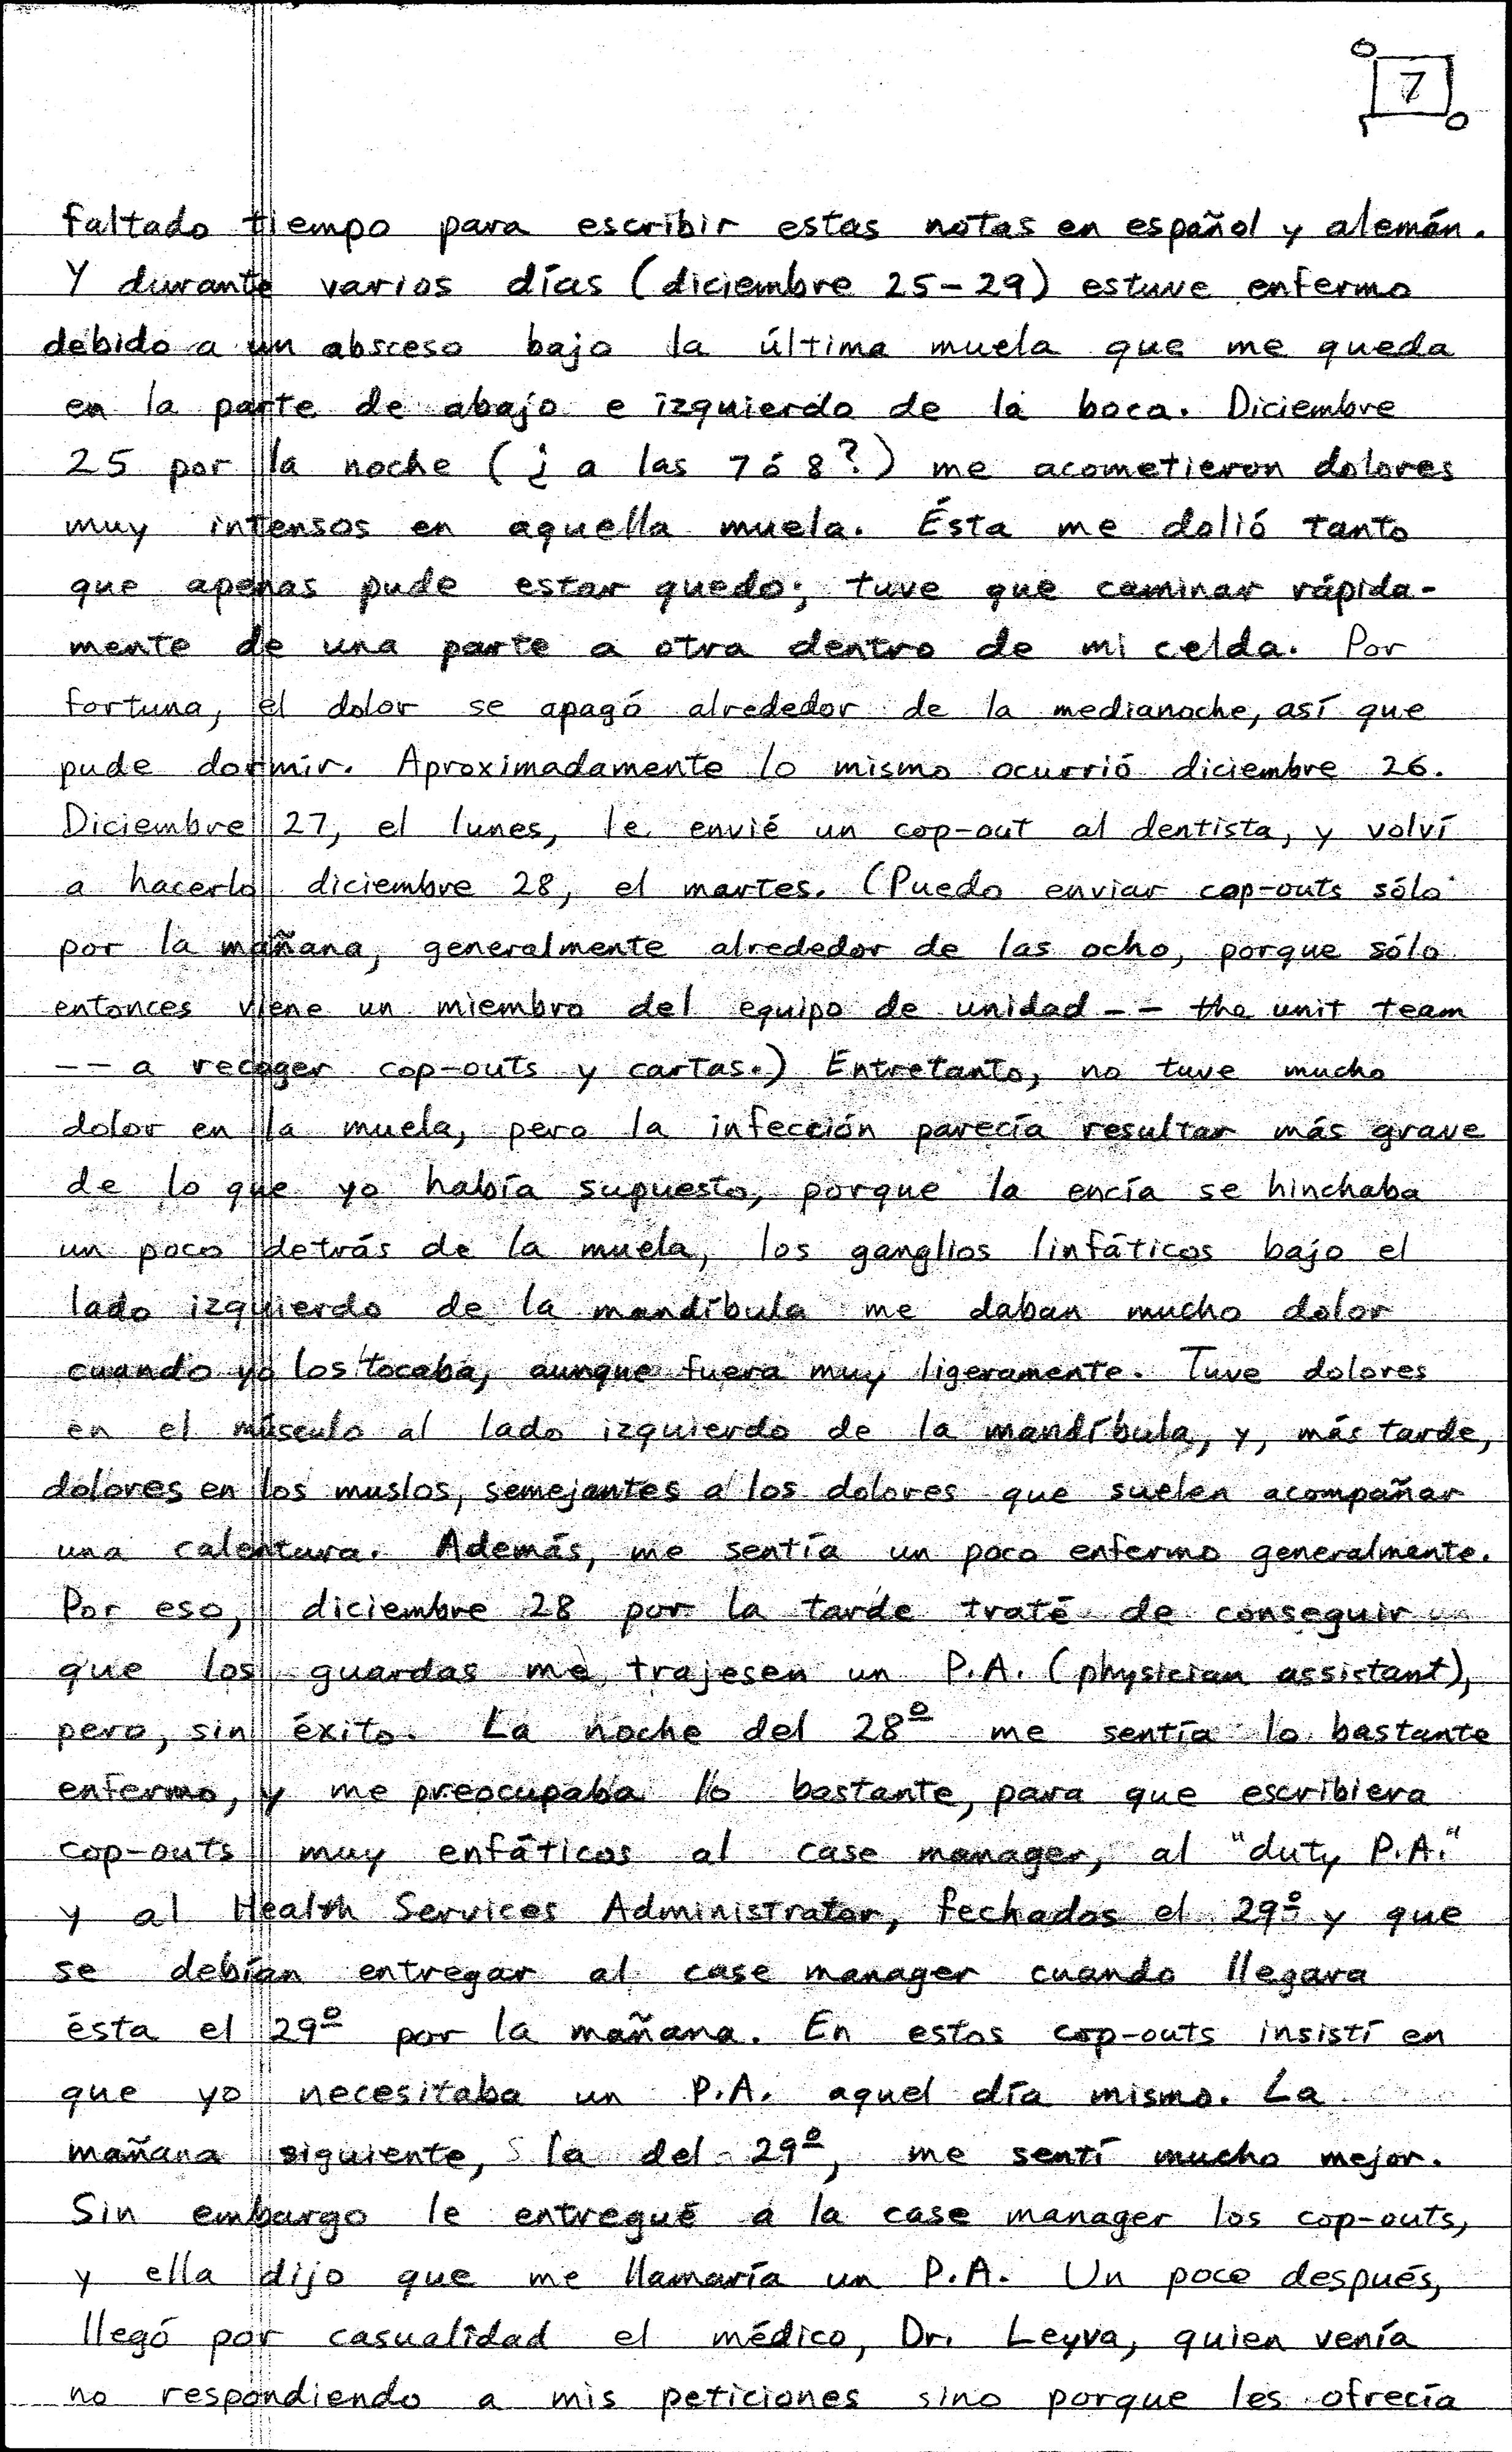 7
faltado tiempo para escribir estas notas en español y alemán.
Y durante varios días (diciembre 25-29) estuve enfermo
debido a un absceso bajo la última muela que me queda
en la parte de abajo e izquierda de la boca. Diciembre
25 por la noche (¿a las 7 ó 8?) me acometieron dolores
muy intensos en aquella muela. Ésta me dolió tanto
que apenas pude estar quedo; tuve que caminar rápida-
mente de una parte a otra dentro de mi celda. Por
fortuna, el dolor se apagó alrededor de la medianoche, así que
pude dormir. Aproximadamente lo mismo ocurrió diciembre 26.
Diciembre 27, el lunes, le envié un cop-out al dentista, y volví
a hacerlo diciembre 28, el martes. (Puedo enviar cop-outs sólo
por la mañana, generalmente alrededor de las ocho, porque sólo
entonces viene un miembro del equipo de unidad -- the unit team
-- a recoger cop-outs y cartas.) Entretanto, no tuve mucho
dolor en la muela, pero la infección parecía resultar más grave
de lo que yo había supuesto, porque la encía se hinchaba
un poco detrás de la muela, los ganglios linfáticos bajo el
lado izquierdo de la mandíbula me daban mucho dolor
cuando yo los tocaba, aunque fuera muy ligeramente. Tuve dolores
en el músculo al lado izquierdo de la mandíbula, y, más tarde,
dolores en los muslos, semejantes a los dolores que suelen acompañar
una calentura. Además, me sentía un poco enfermo generalmente.
Por eso, diciembre 28 por la tarde traté de conseguir
que los guardas me trajesen un P.A. (physician assistant),
pero, sin éxito. La noche del 28º me sentía lo bastante
enfermo, y me preocupaba lo bastante, para que escribiera
cop-outs muy enfáticos al case manager, al "duty P.A."
y al Health Services Administrator, fechados el 29º y que
se debían entregar al case manager cuando llegara
ésta el 29º por la mañana. En estos cop-outs insistí en
que yo necesitaba un P.A. aquel día mismo. La
mañana siguiente, la del 29º, me sentí mucho mejor.
Sin embargo le entregué a la case manager los cop-outs,
y ella dijo que me llamaría un P.A. Un poco después,
llegó por casualidad el médico, Dr. Leyva, quien venía
no respondiendo a mis peticiones sino porque les ofrecía